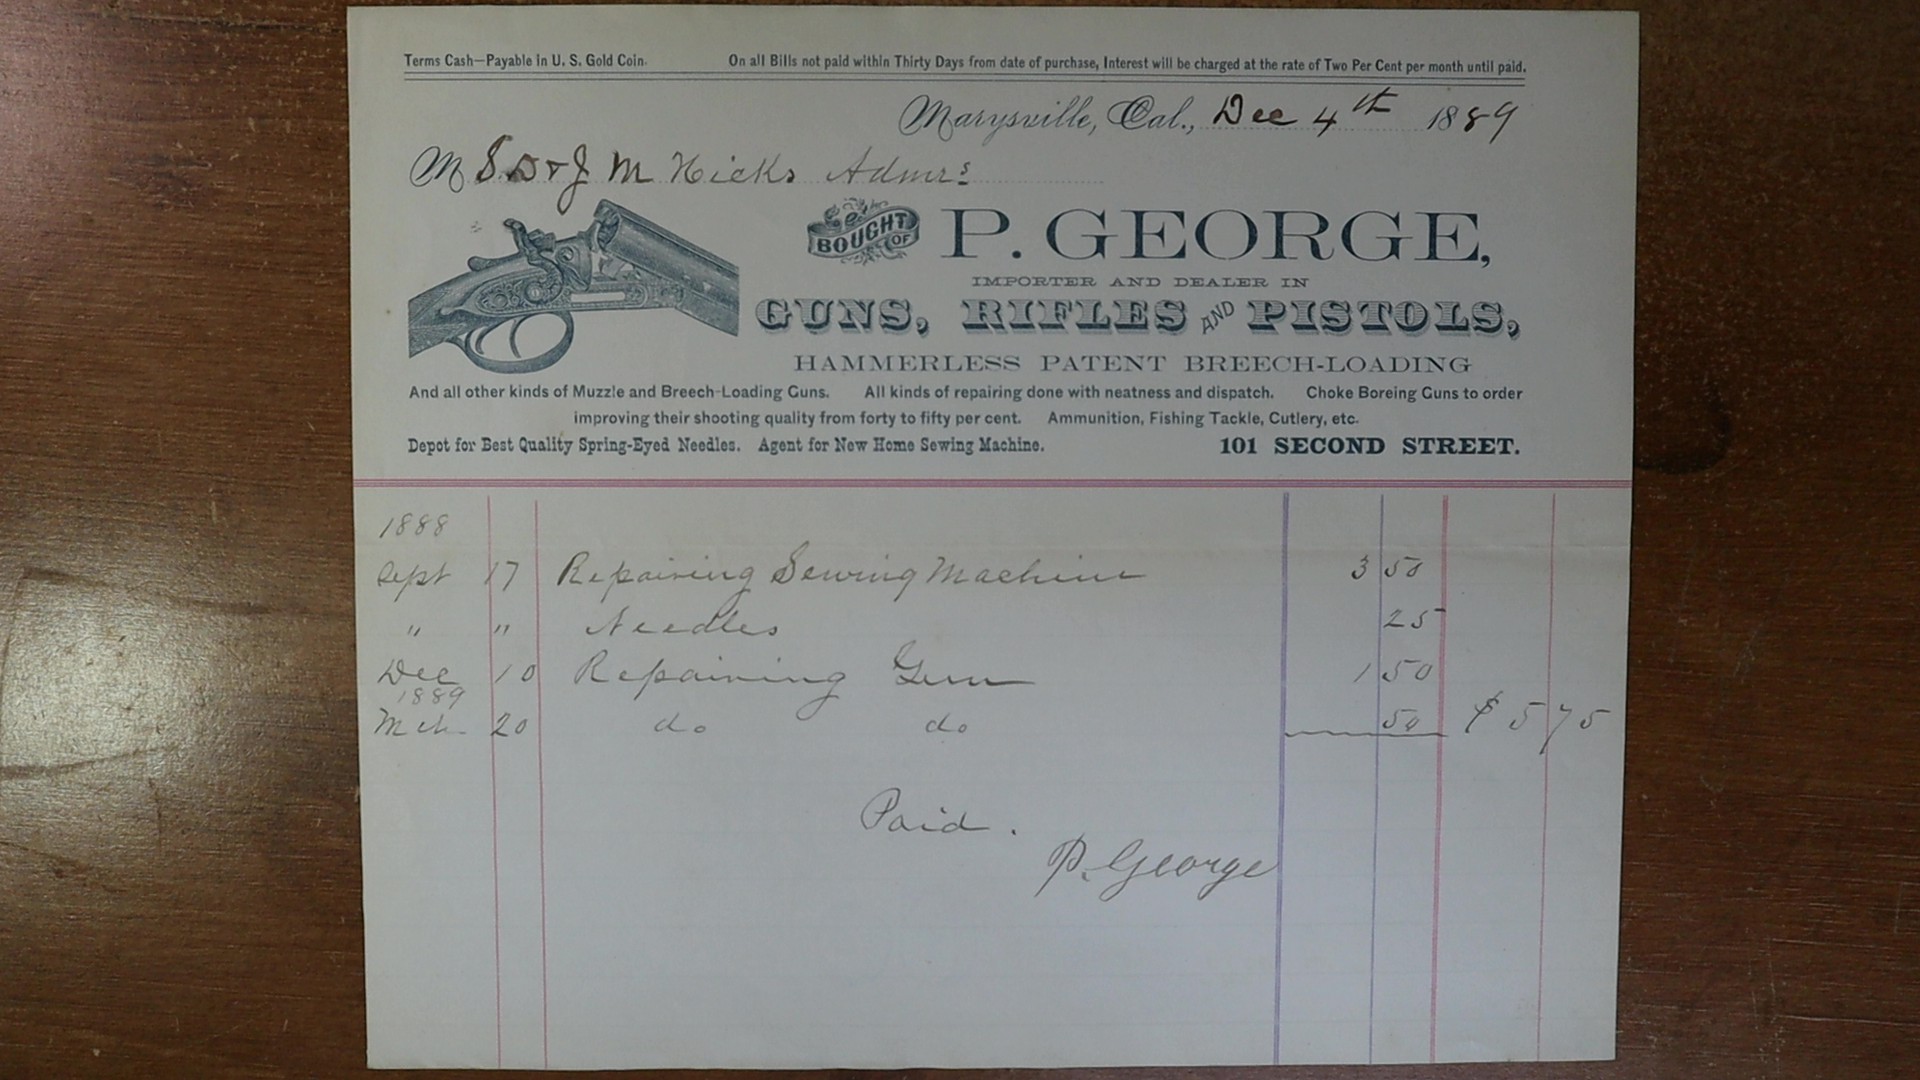 Terms Cash—Payable in U. S. Gold Coin. On all Bills not paid within Thirty Days from date of purchase, Interest will be charged at the rate of Two Per Cent per month until paid.
Marysville, Cal., Dec 4th 1889
M S. D & J M Hicks Admrs
BOUGHT OF P. GEORGE,
IMPORTER AND DEALER IN
GUNS, RIFLES AND PISTOLS,
HAMMERLESS PATENT BREECH-LOADING
And all other kinds of Muzzle and Breech-Loading Guns. All kinds of repairing done with neatness and dispatch. Choke Boreing Guns to order
improving their shooting quality from forty to fifty per cent. Ammunition, Fishing Tackle, Cutlery, etc.
Depot for Best Quality Spring-Eyed Needles. Agent for New Home Sewing Machine. 101 SECOND STREET.
1888
Sept 17 Repairing Sewing Machine 3 50
" " Needles 25
Dec 10 Repairing Gun 1 50
1889
Mch. 20 do do 50 $ 5 75
Paid.
P. George